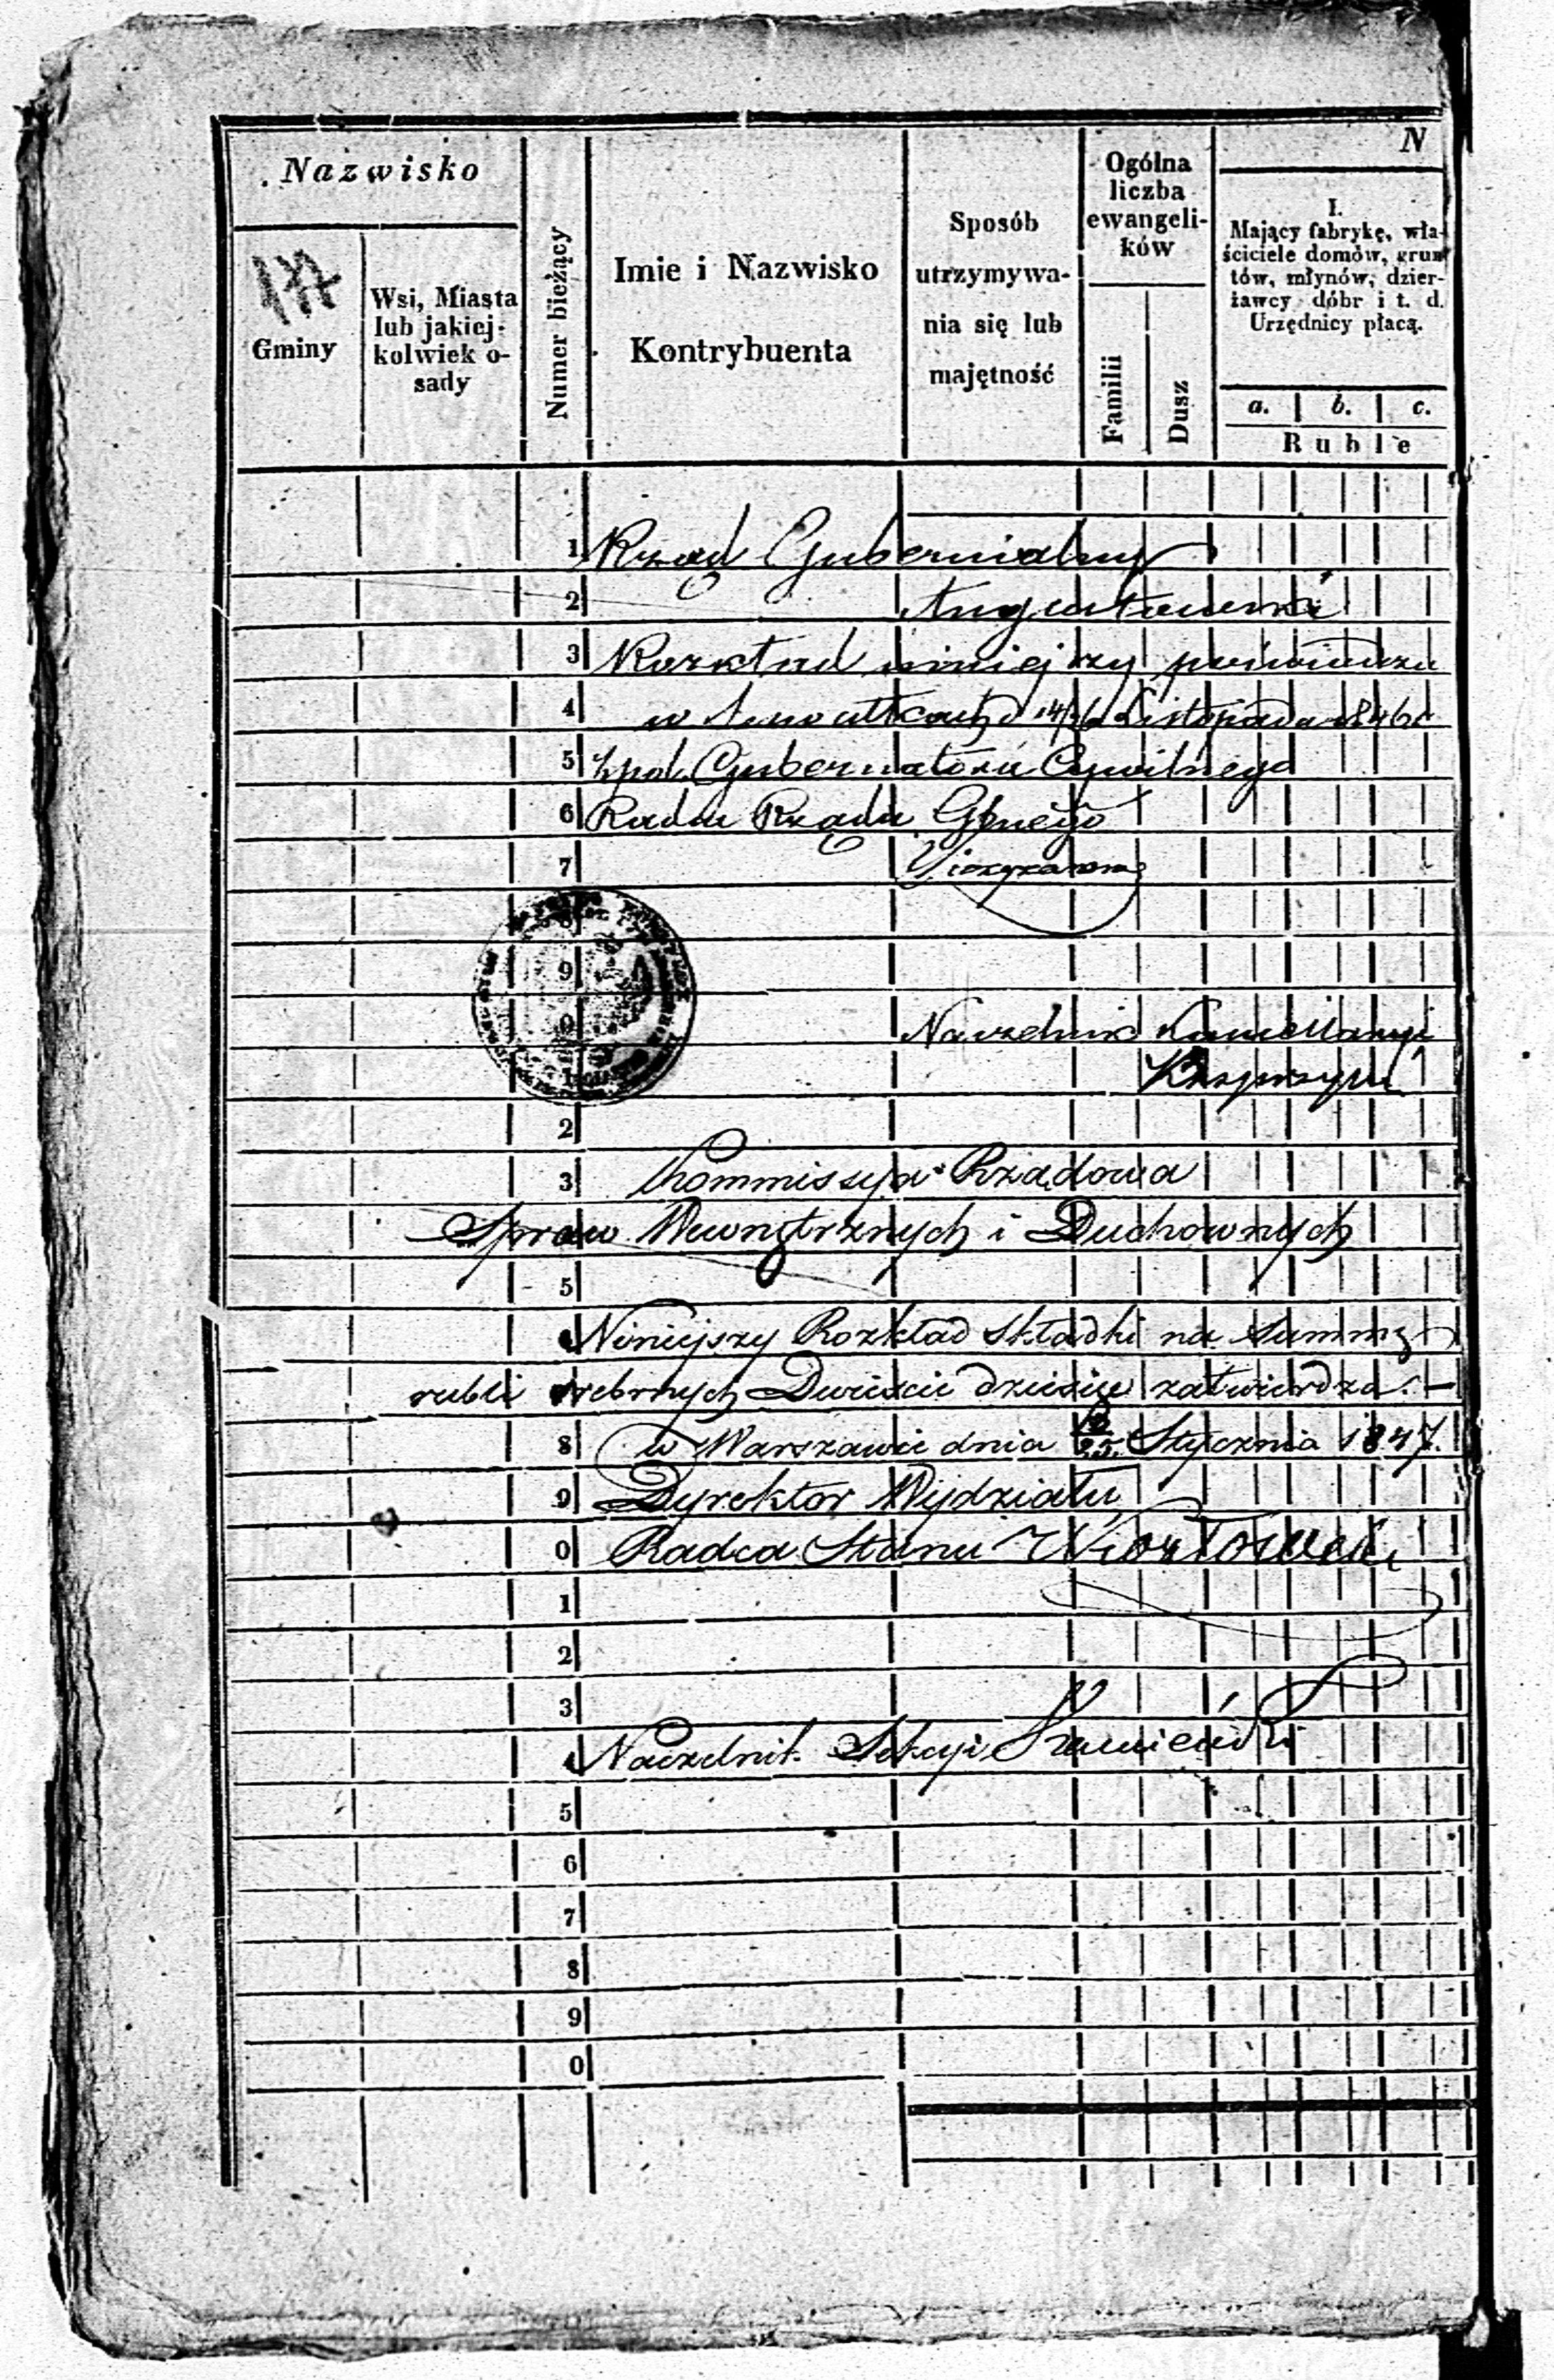 N
Nazwisko
177
Gminy
Wsi, Miasta
lub jakiej-
kolwiek o-
sady
Numer bieżący
Imie i Nazwisko
Kontrybuenta
Sposób
utrzymywa-
nia się lub
majętność
Ogólna
liczba
ewangeli-
ków
Familii
Dusz
I.
Mający fabrykę, wła-
ściciele domów, grun
tów, młynów, dzier-
żawcy dóbr i t. d.
Urzędnicy płacą.
a. b. c.
Ruble
1 Rząd Gubernialny
2 Augustowski
3 Rozkład niniejszy
4 w Suwałkach d 14/26 Listopada 1846 r
5 Gubernatora Cywilnego
6 Radca Rządu Gbnego
7
8
9
0 Naczelnik Kancellaryi
2
3 Kommissya Rządowa
Spraw Wewnętrznych i Duchownych
5
Niniejszy Rozkład Składki na Summę
rubli srebrnych Dwieście dziesięć zatwierdza. —
8 w Warszawie dnia 13/25 Stycznia 1847.
9 Dyrektor Wydziału
0 Radca Stanu
1
2
3
4 Naczelnik Sekcyi
5
6
7
8
9
0